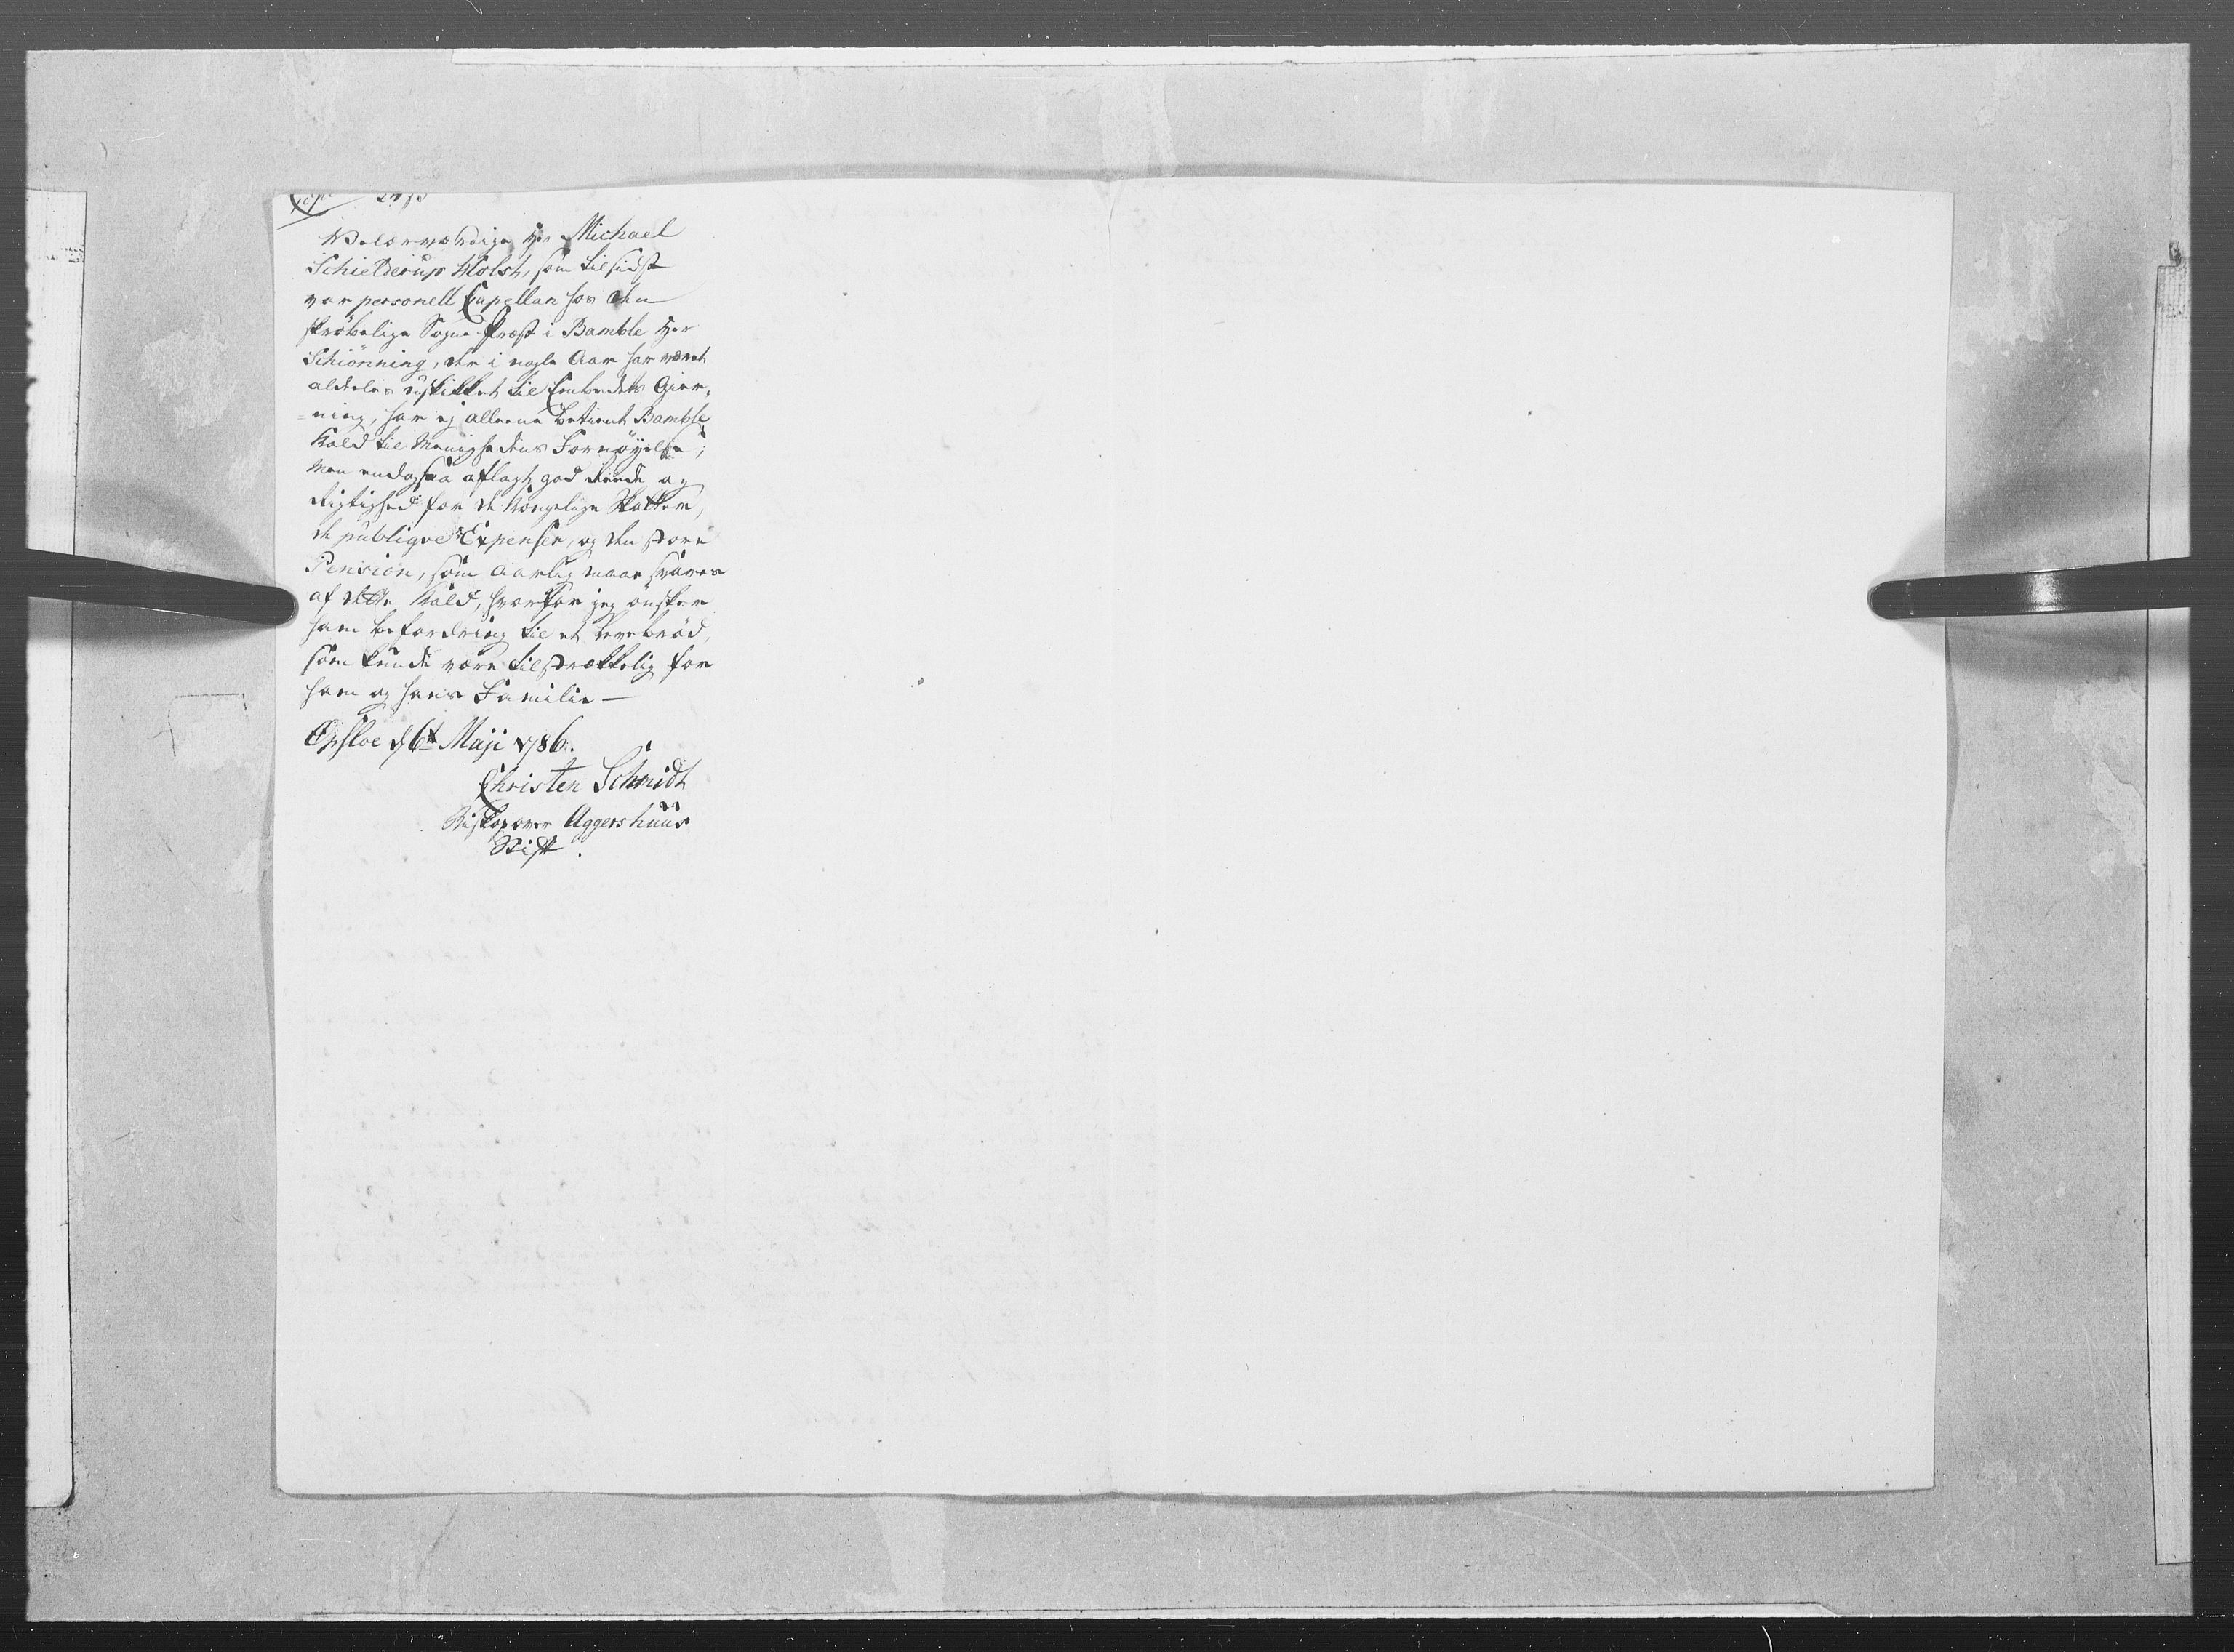 Velærværdige Hr Michael
Schielderup Holst, som tilsidst
var personell Capellan hos den
skrøbelige Sogne-Præst i Bamble Hr
Schiönning, der i nogle Aar har været
aldeles uskikket til Embedets Gier-
=ning, har ej alleene betient Bamble
Kald til Menighedens Fornöyelse;
men endogsaa aflagt god Reede og
Rigtighed for de Kongelige Skatter,
de publiqve Expenser, og den store
Pension, som aarlig maae svares
af dette Kald, hvorfor jeg ønsker
ham befordring til et Levebröd,
som kunde være tilstrækkelig for
ham og hans Familie —
Opsloe d 6t Maji 1786.
Christen Schmidt
Biskop over Aggershuus
Stift.